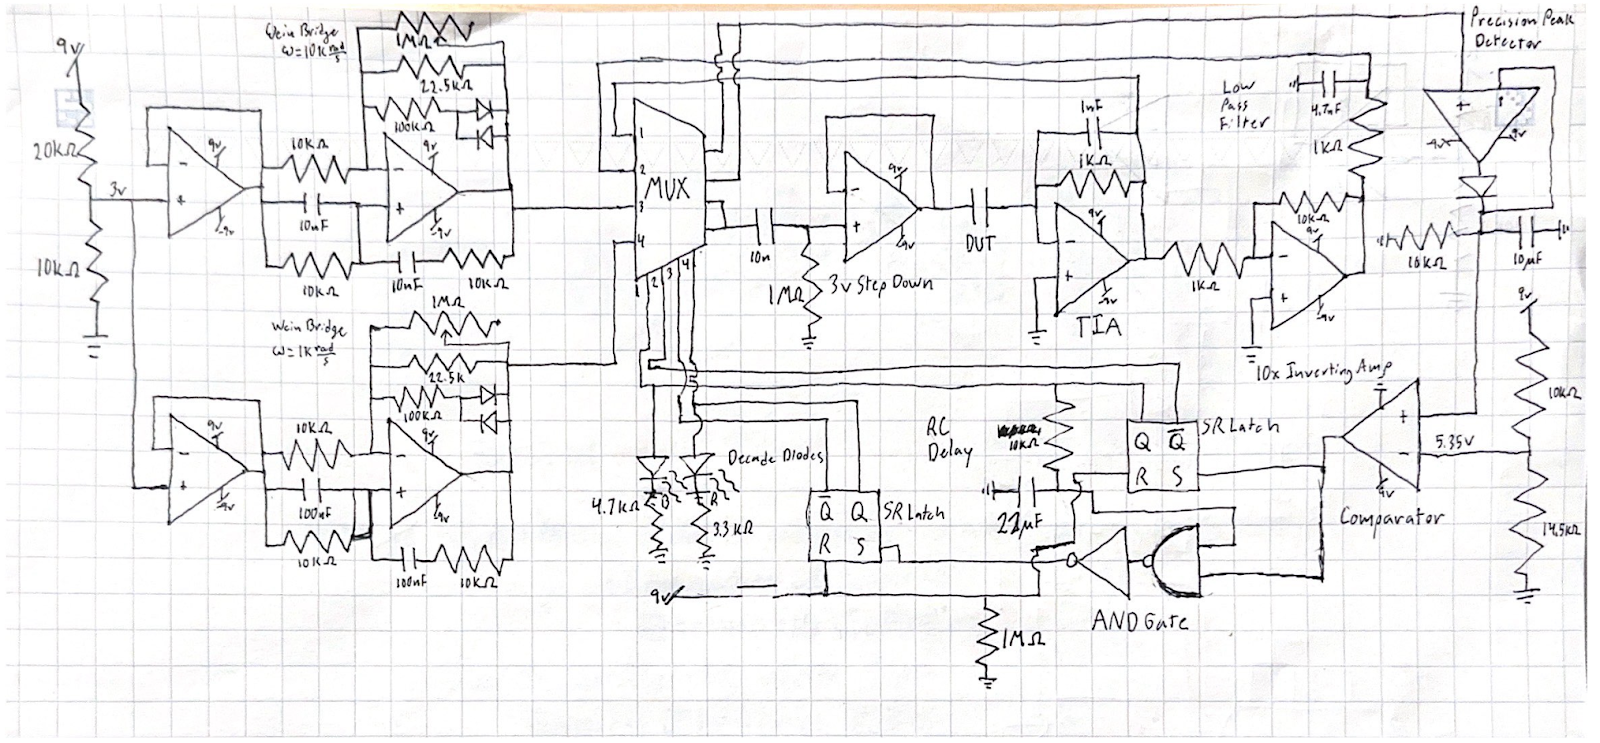 9v
20KΩ
3v
10KΩ
-
+
9v
-9v
Wein Bridge
ω=10K rad/s
1MΩ
22.5KΩ
100KΩ
10KΩ
10nF
10KΩ
10nF
10KΩ
-
+
9v
-9v
Wein Bridge
ω=1K rad/s
1MΩ
22.5K
100KΩ
10KΩ
100nF
10KΩ
100nF
10KΩ
-
+
9v
-9v
-
+
9v
-9v
1
2
3
4
MUX
1 2 3 4
10n
1MΩ
-
+
9v
-9v
3v Step Down
DUT
1nF
1KΩ
-
+
9v
-9v
TIA
1KΩ
10KΩ
-
+
9v
-9v
10x Inverting Amp
Low
Pass
Filter
4.7nF
1KΩ
Precision Peak
Detector
+
-
-9v
9v
10KΩ
10µF
9v
10KΩ
5.35v
14.5KΩ
+
-
9v
Comparator
Decade Diodes
B
R
4.7KΩ
3.3KΩ
Q̅ Q
R S
SR Latch
RC
Delay
10KΩ
22µF
Q Q̅
R S
SR Latch
AND Gate
9v
1MΩ